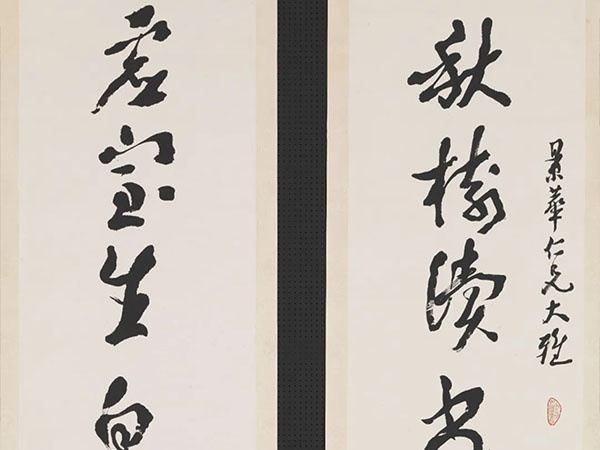 景華仁兄大雅
秋樹讀書
虛室生白